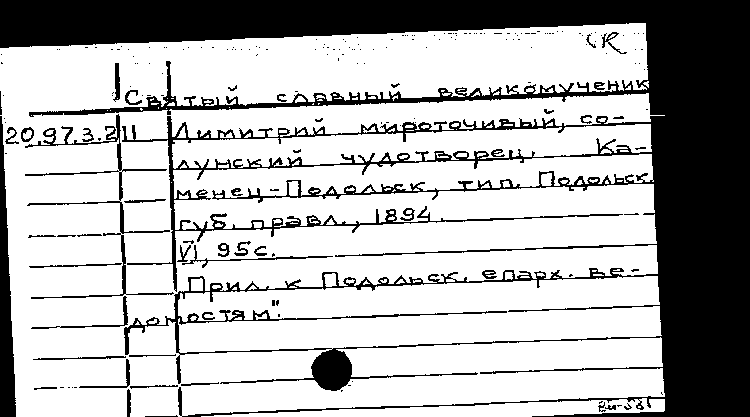 Святый славный великомученик
20.97.3.211 Димитрий мироточивый, со-
лунский чудотворец. Ка-
менец-Подольск, тип. Подольск.
губ. правл., 1894.
VI, 95 с.
"Прил. к Подольск. епарх. ве-
домостям".